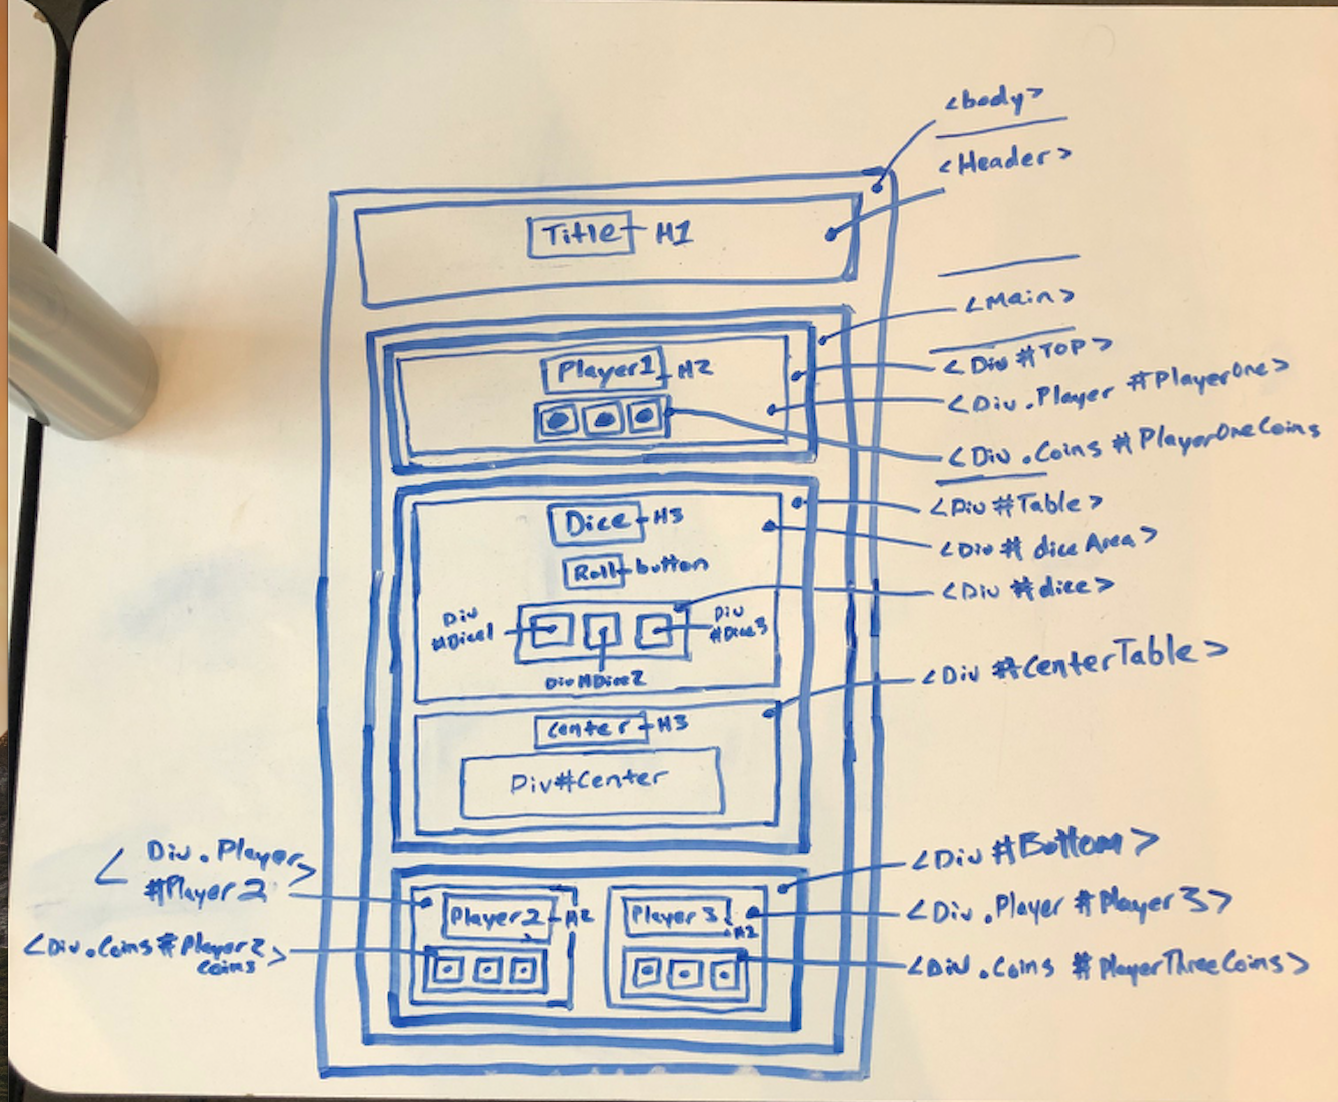 <body>
<Header>
Title H1
<Main>
<Div #TOP>
Player1 H2
<Div .Player #PlayerOne>
<Div .Coins #PlayerOneCoins
<Div #Table>
Dice H3
<Div # dice Area>
Roll button
<Div #dice>
Div
#Dice1
Div
#Dice3
Div#Dice2
<Div #CenterTable>
Center H3
Div#Center
<Div #Bottom>
< Div .Player >
#Player2
Player2 H2
Player 3 H2
<Div .Player #Player3>
<Div .Coins #Player2
Coins>
<Div .Coins #PlayerThreeCoins>